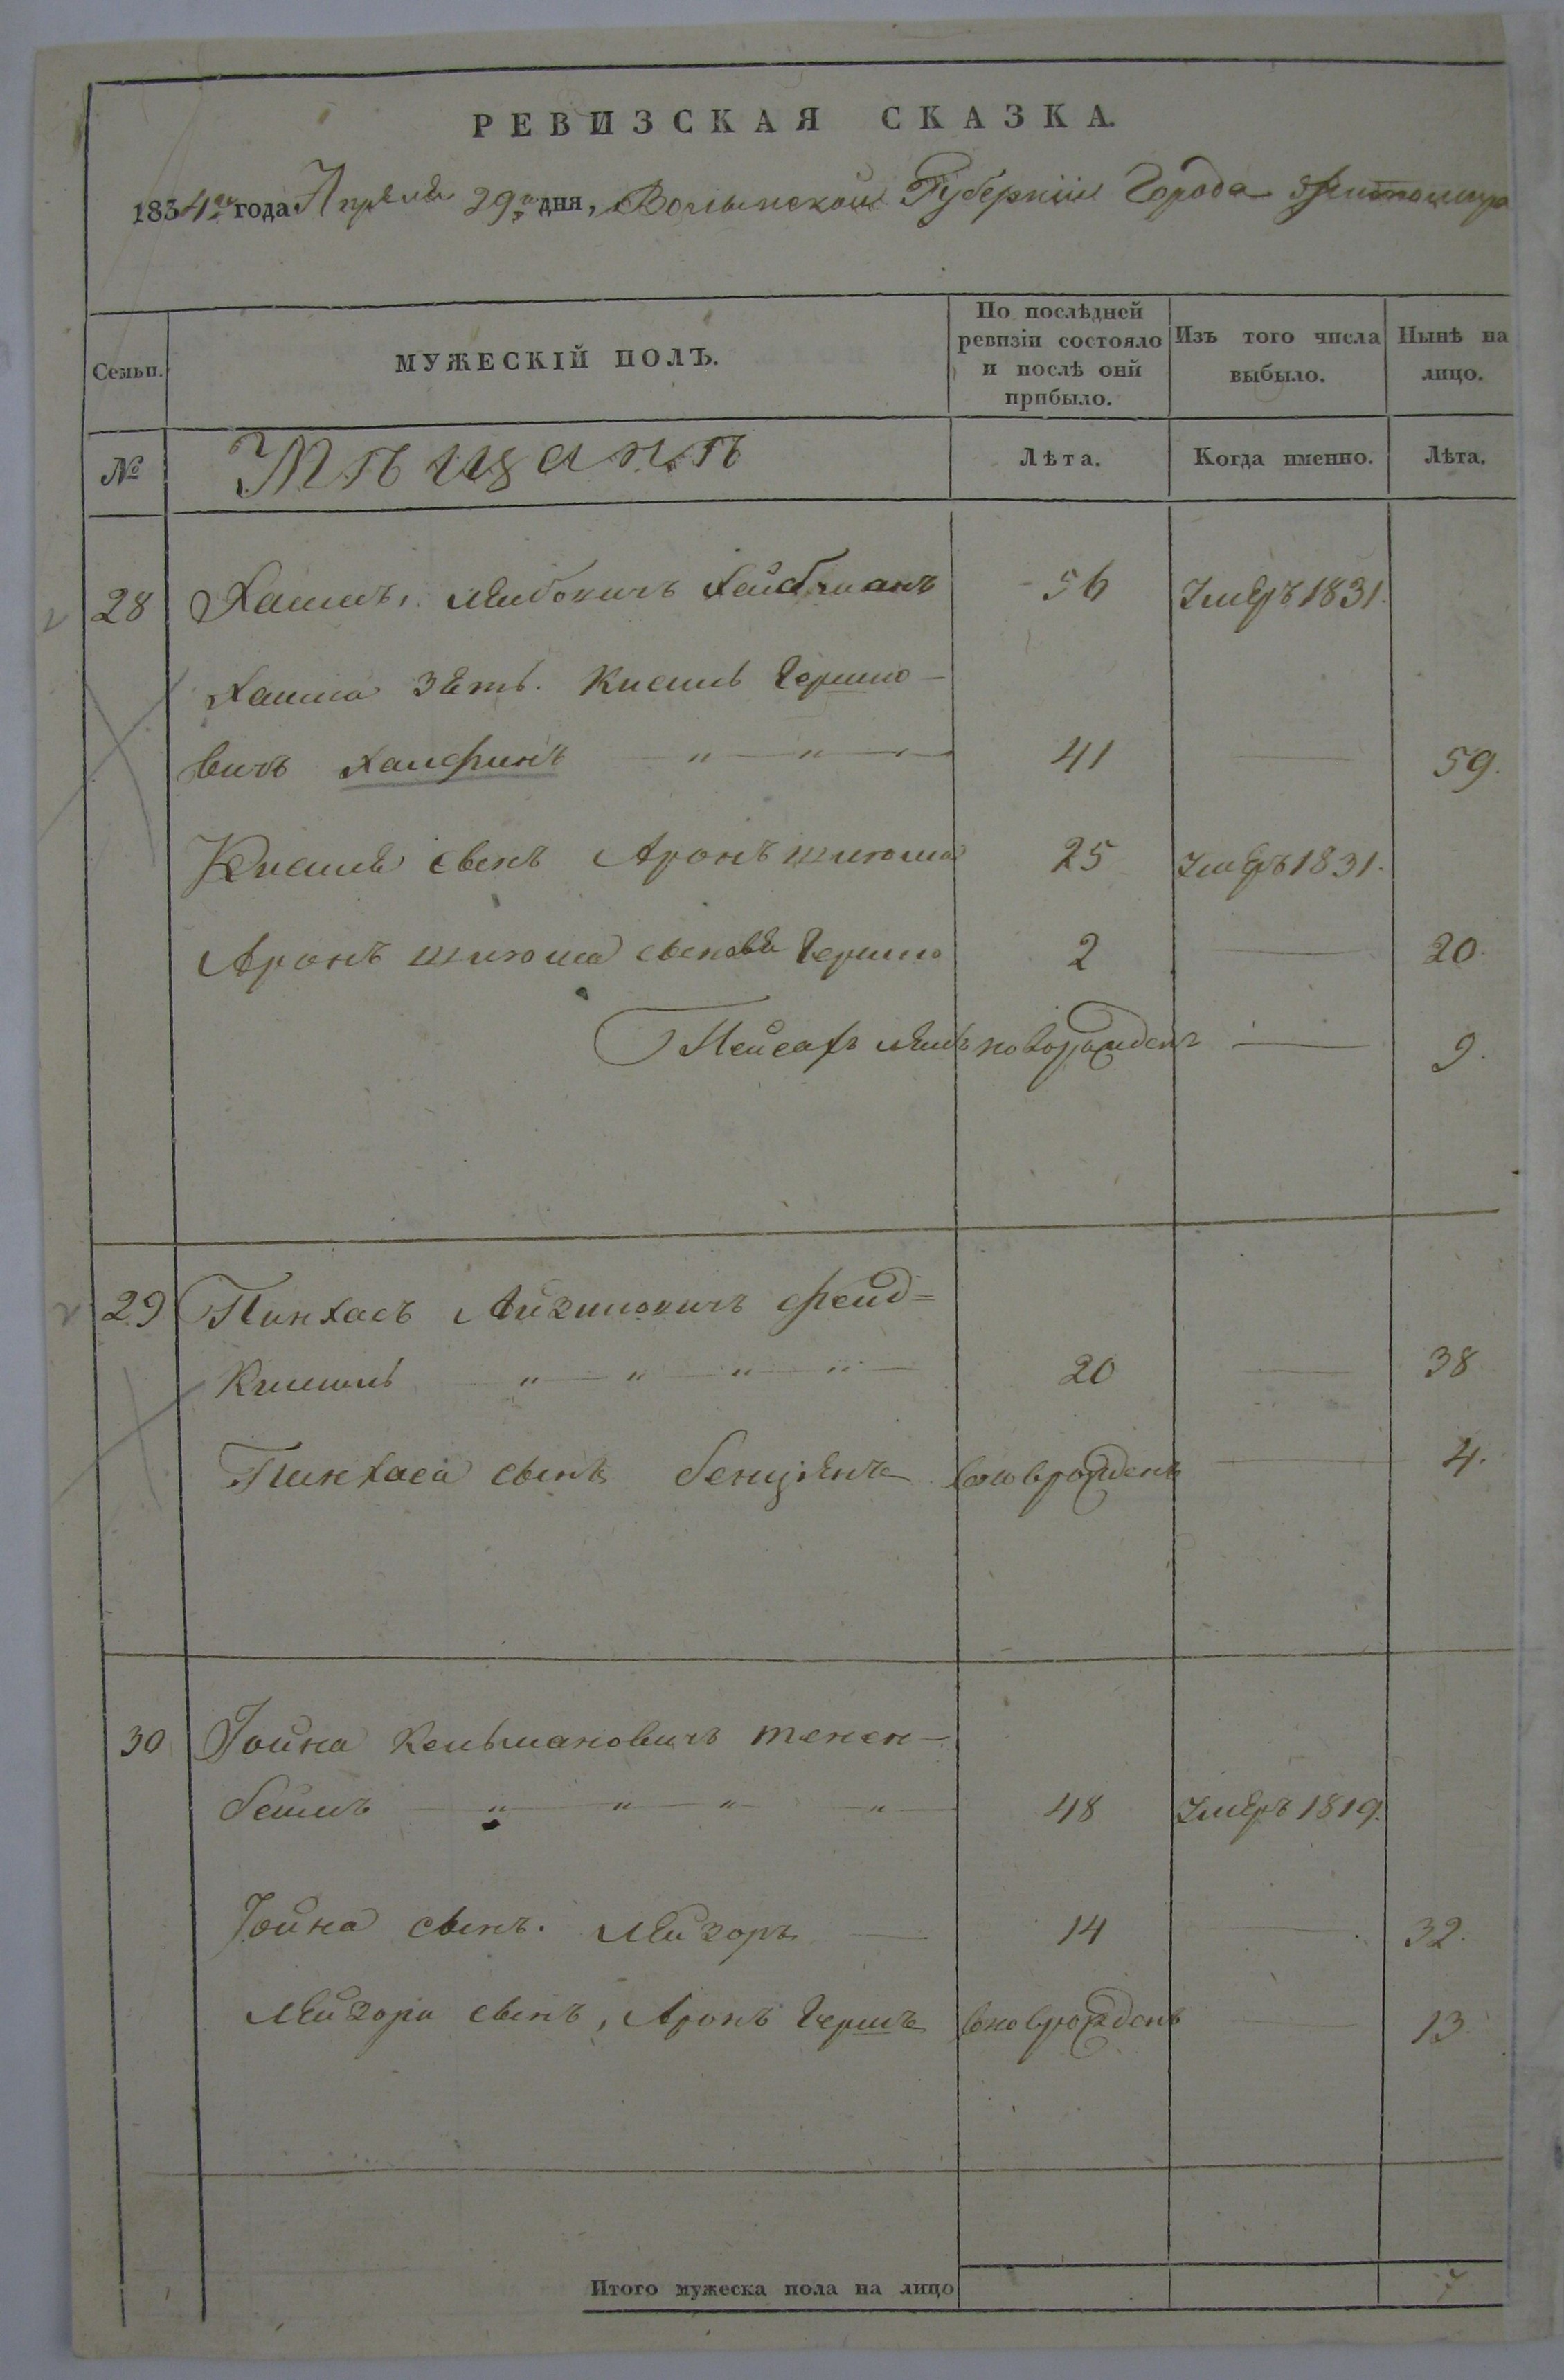 РЕВИЗСКАЯ СКАЗКА.
1834го года Апреля 29го дня, Волынской Губернии Города Житомира
Семьи.
МУЖЕСКІЙ ПОЛЪ.
По послѣдней
ревизіи состояло
и послѣ оній
прибыло.
Изъ того числа
выбыло.
Нынѣ на
лицо.
№
Мѣщанъ
Лѣта.
Когда именно.
Лѣта.
28 Хаимъ, Лейбовичъ 56 Умеръ 1831.
Хаима Зять. Кисиль Гершко-
вичъ " " " 41 — 59.
Кисиля сынъ Аронъ Шлиома 25 Умеръ 1831.
Аронъ Шлиома сыновья Гершко 2 — 20.
Пейсахъ новорожденъ — 9.
29 Пинхасъ Айзиковичъ Фейд=
" " " " 20 — 38
Пинхаса сынъ Бенціенъ вновьрожденъ — 4.
30 Іойна Кельмановичъ Тенен-
баимъ " " " " 48 Умеръ 1819.
Іойна сынъ. Лейзоръ — 14 — 32.
Лейзора сынъ, Аронъ Гершъ вновьрожденъ — 13.
Итого мужеска пола на лицо 7